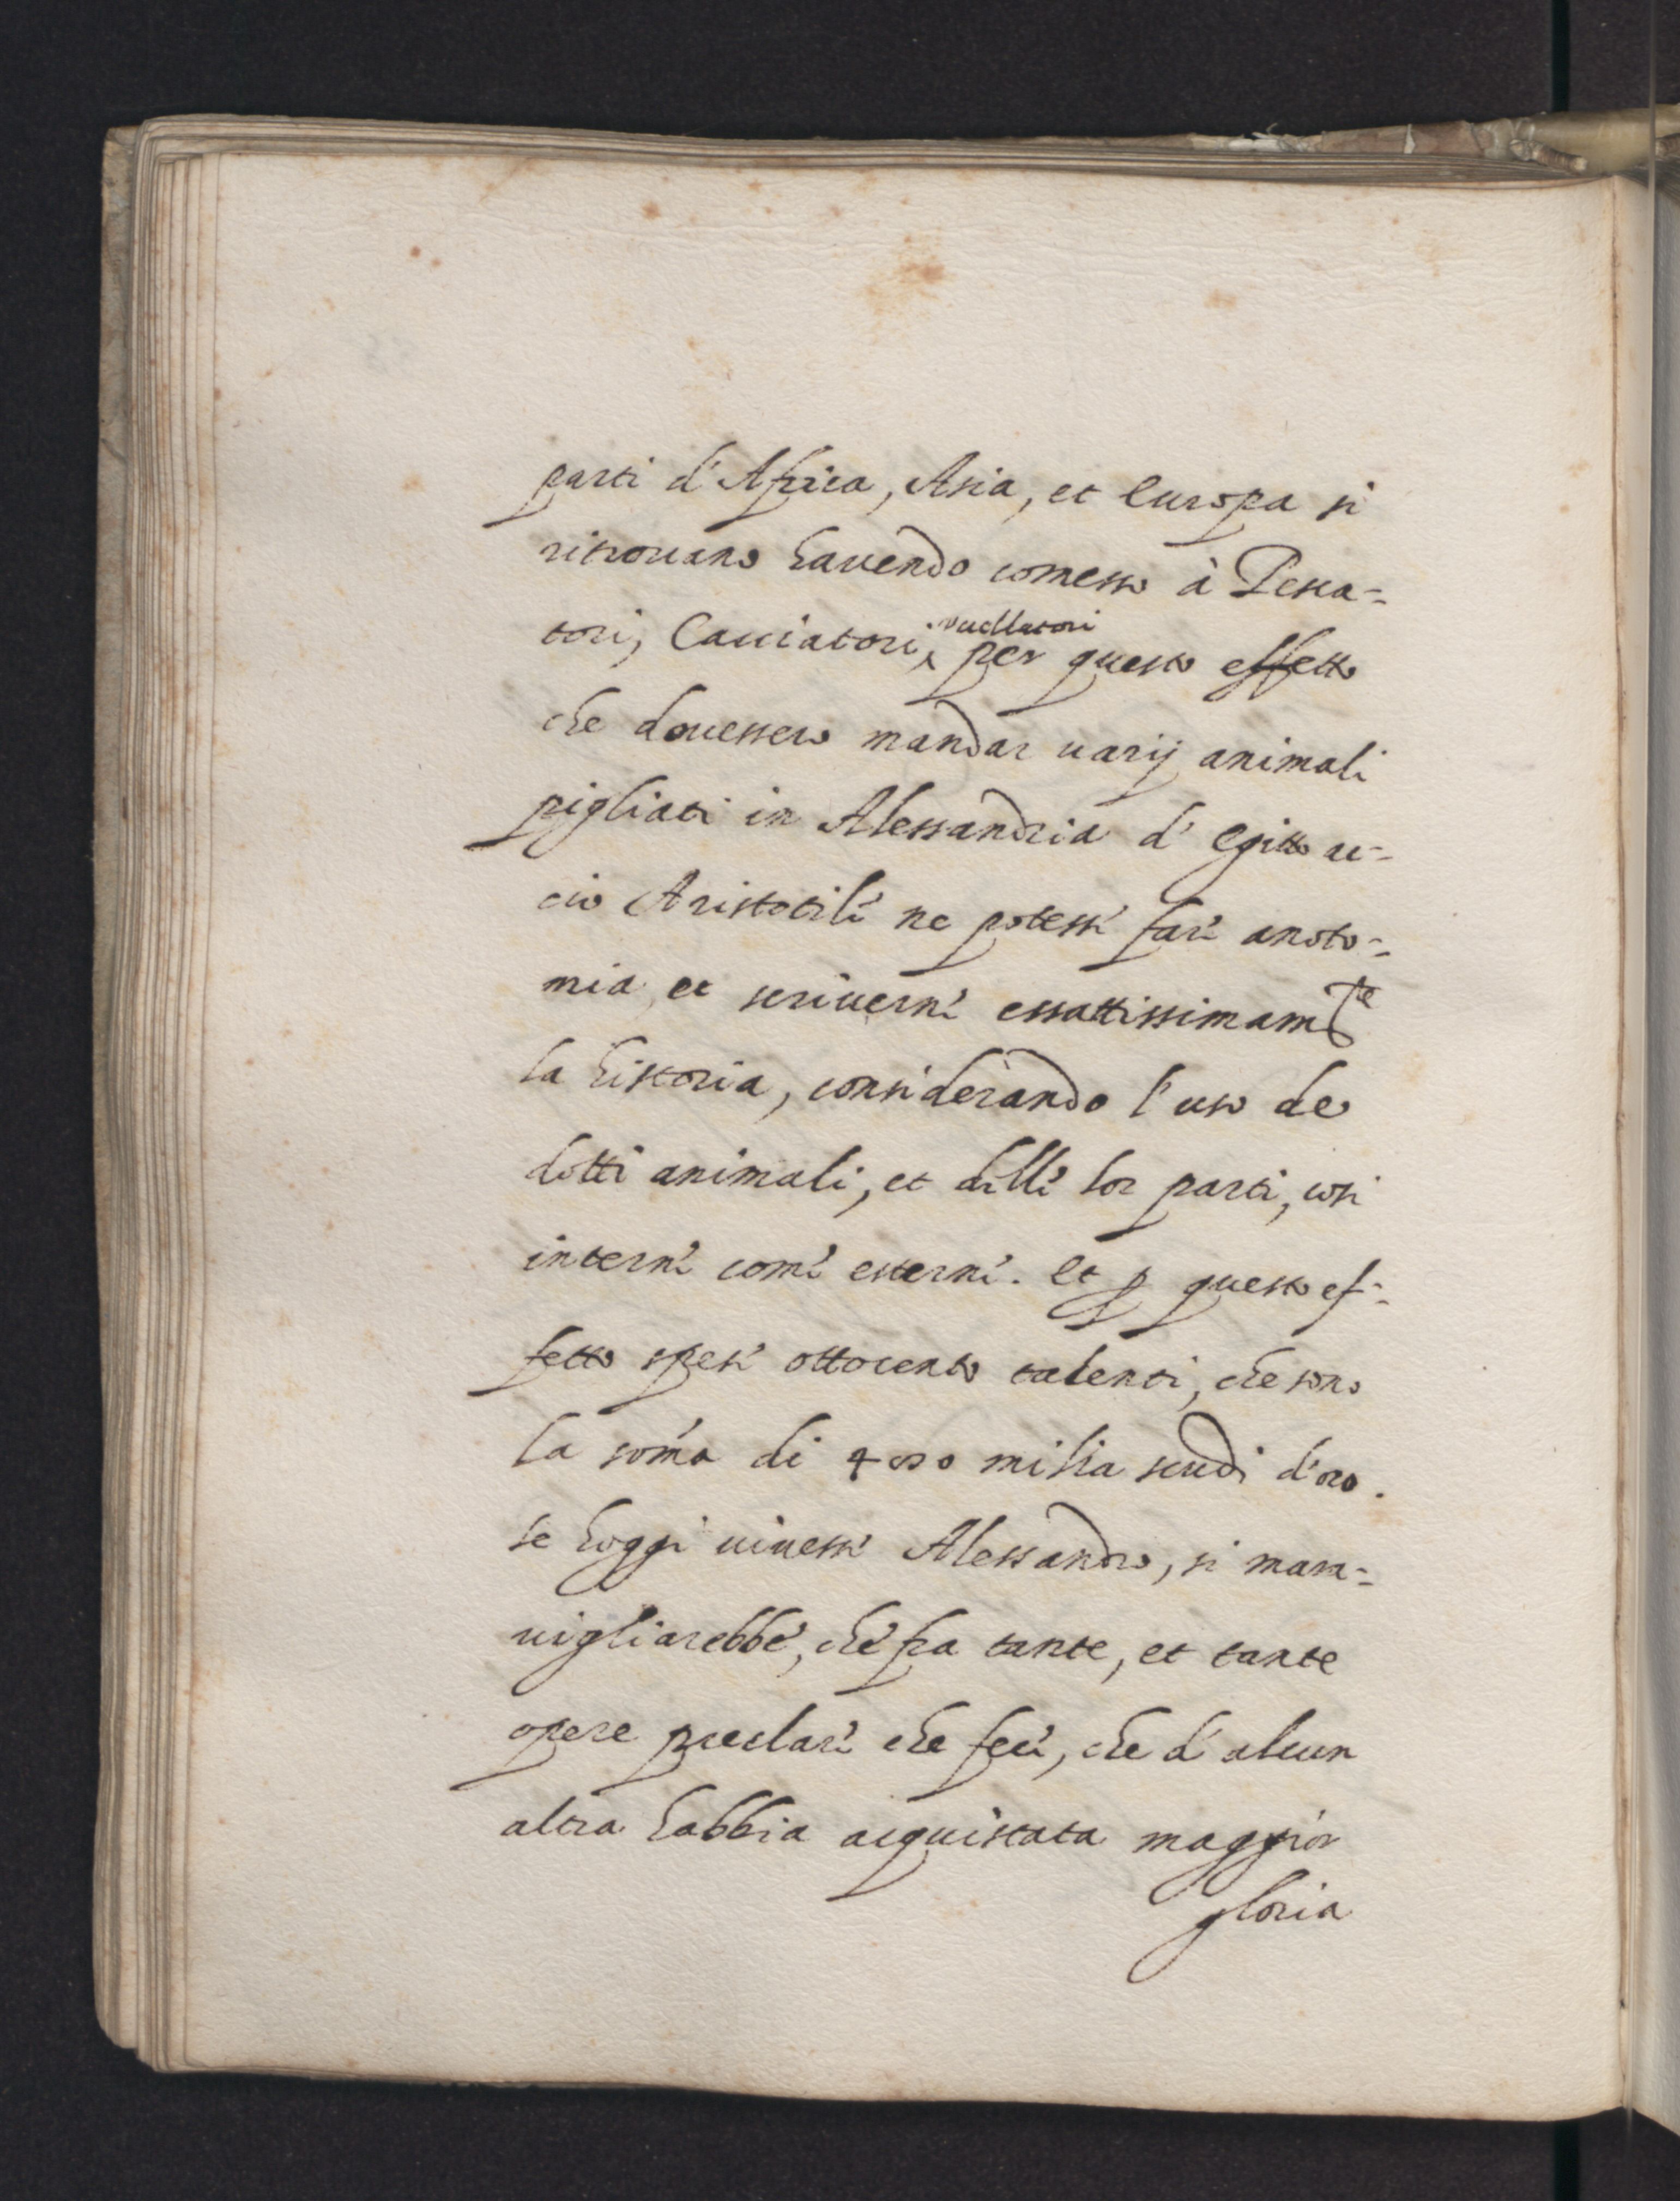 parti d'Africa, Asia, et Europa si
ritrouano hauendo comesso à Pesca-
tori, Cacciatori, vcellatori per questo effetto
che douessero mandar uarij animali
pigliati in Alessandria d'Egitto ac-
ciò Aristotile ne potesse fare anoto-
mia et scriuerne essattissimamte
la historia, considerando l'uso de
dotti animali, et delle lor parti, cosi
interne come esterne. Et p questo ef-
fetto spese ottocento talenti, che sono
la soma di 4000 milia scudi d'oro.
se hoggi uiuesse Alessandro, si mara-
uigliarebbe, che fra tante, et tante
opere preclare che fece, che d'alcun
altra habbia acquistata maggior
gloria